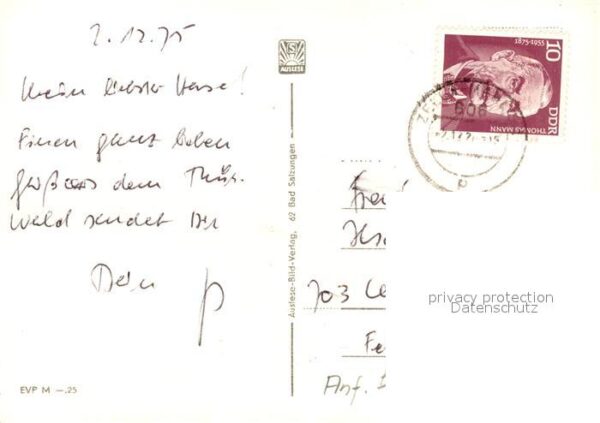 2.12.75
Mein liebster Hase!
Einen ganz lieben
Gruß aus dem Thür.
Wald sendet Dir
Dein
EVP M —.25
AUSLESE
Auslese-Bild-Verlag, 62 Bad Salzungen
10
1875-1955
DDR
THOMAS MANN
606
703 Le
privacy protection
Datenschutz
Anf.